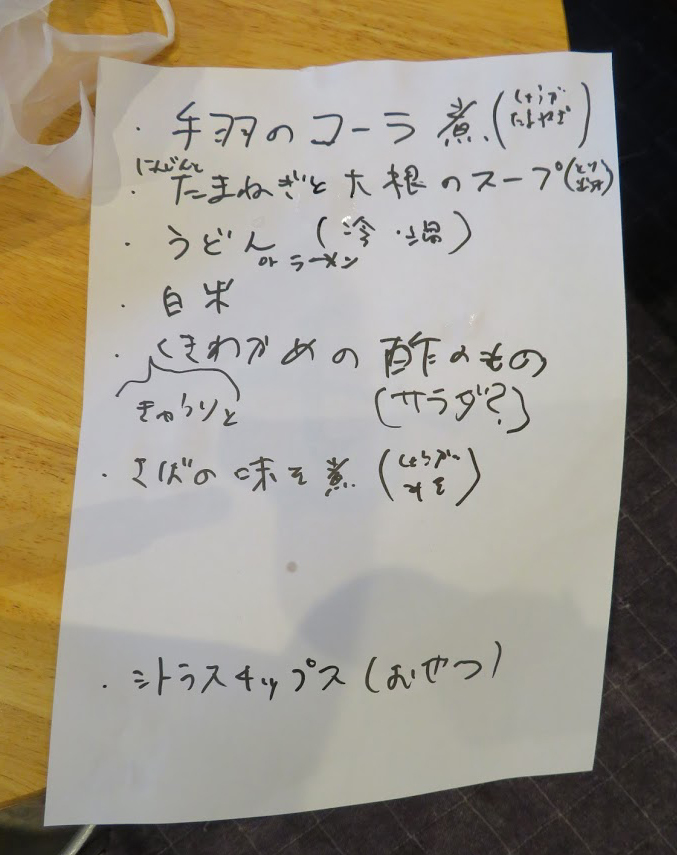 ・手羽のコーラ煮(しょうが たまねぎ)
にんじんと
・たまねぎと大根のスープ(とり
・うどん(冷・温)
or ラーメン
・白米
・くきわかめの酢のもの
きゅうりと (サラダ?)
・さばの味そ煮(しょうが みそ)
・シトラスチップス(おやつ)